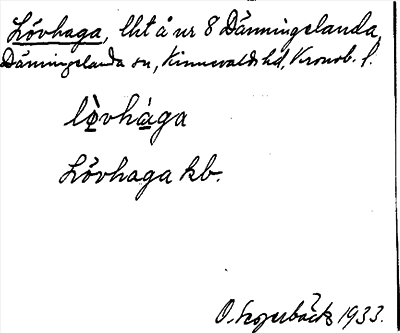 Lövhaga, lht å nr 8 Dänningelanda,
Dänningelanda sn, Kinnevalds hd, Kronob. l.
lö̀vhága
Lövhaga kb.
O. 1933.